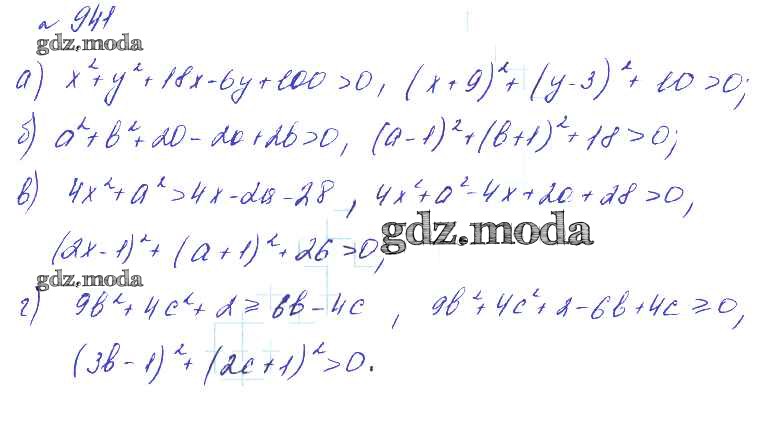 № 941
gdz.moda
а) x²+y²+18x-6y+100>0, (x+9)²+(y-3)²+10>0;
б) a²+b²+20-2a+2b>0, (a-1)²+(b+1)²+18>0;
в) 4x²+a²>4x-2a-28, 4x²+a²-4x+2a+28>0,
gdz.moda
(2x-1)²+(a+1)²+26>0;
gdz.moda
г) 9b²+4c²+2≥6b-4c, 9b²+4c²+2-6b+4c≥0,
(3b-1)²+(2c+1)²>0.